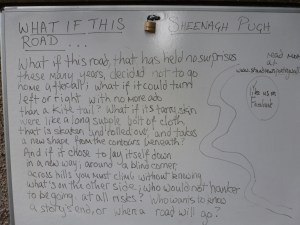 WHAT IF THIS
ROAD...
SHEENAGH PUGH
What if this road, that has held no surprises
these many years, decided not to go
home after all; what if it could turn
left or right with no more ado
than a kite-tail? What if its tarry skin
were like a long, supple bolt of cloth,
that is shaken and rolled out, and takes
a new shape from the contours beneath?
And if it chose to lay itself down
in a new way; around a blind corner,
across hills you must climb without knowing
what's on the other side; who would not hanker
to be going, at all risks? Who wants to know
a story's end, or where a road will go?
at
Like us on
Facebook